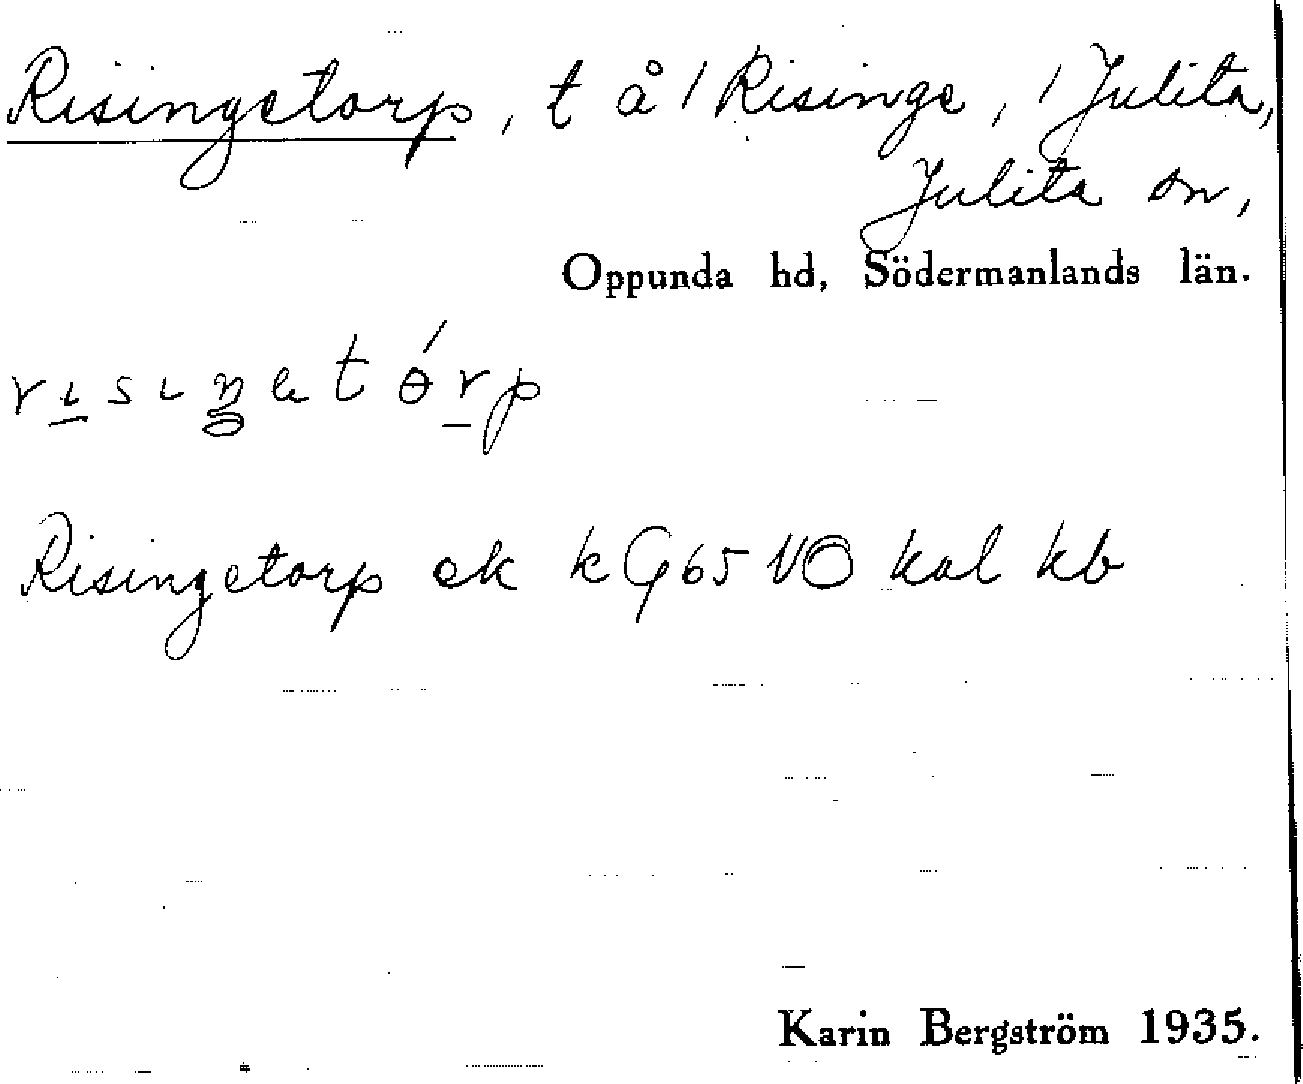 Risingetorp, t å 1 Risinge, 1 Julita,
Julita sn,
Oppunda hd, Södermanlands län.
Risingetorp ek k G65 NO kal kb
Karin Bergström 1935.